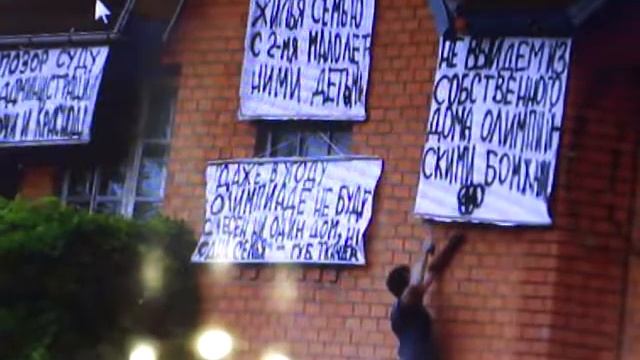 ПОЗОР СУДУ
АДМИНИСТРАЦИ
И КРАСНОД
ЖИЛЬЯ СЕМЬЮ
С 2-МЯ МАЛОЛЕТ
НИМИ ДЕТЬМИ
ДАЖЕ В ХОДУ
ОЛИМПИАДЕ НЕ БУДЕ
НИ ОДИН ДОМ, НИ
ОДНА СЕМЬЯ -
НЕ ВЫЙДЕМ ИЗ
СОБСТВЕННОГО
ДОМА ОЛИМПИЙ-
СКИМИ БОМЖАМИ